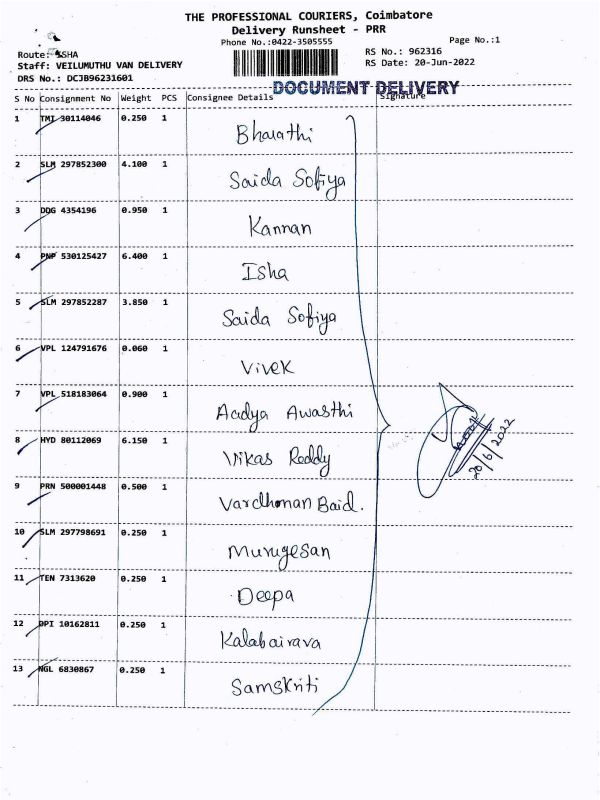 THE PROFESSIONAL COURIERS, Coimbatore
Delivery Runsheet - PRR
Phone No.:0422-3505555
Page No.:1
Route: ISHA
RS No.: 962316
Staff: VEILUMUTHU VAN DELIVERY
RS Date: 20-Jun-2022
DRS No.: DCJB96231601
DOCUMENT DELIVERY
S No Consignment No Weight PCS Consignee Details Signature
1 TMI 30114046 0.250 1 Bharathi
2 SLM 297852300 4.100 1 Saida Sofiya
3 DDG 4354196 0.950 1 Kannan
4 PNP 530125427 6.400 1 Isha
5 SLM 297852287 3.850 1 Saida Sofiya
6 VPL 124791676 0.060 1 Vivek
7 VPL 518183064 0.900 1 Aadya Awasthi
8 HYD 80112069 6.150 1 Vikas Reddy
9 PRN 500001448 0.500 1 Vardhman Baid.
10 SLM 297798691 0.250 1 Murugesan
11 TEN 7313620 0.250 1 Deepa
12 DPI 10162811 0.250 1 Kalabairava
13 NGL 6830867 0.250 1 Samskriti
20/6/2022